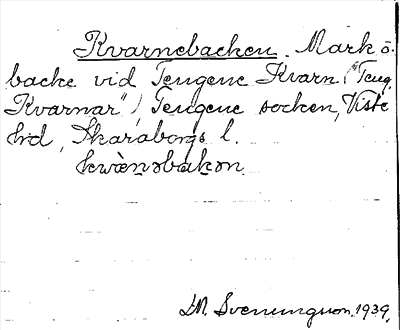 Kvarnebacken. Mark o.
backe vid Tengene Kvarn ("Teng.
Kvarnar"), Tengene socken, Viste
hd, Skaraborgs l.
kwàṇəbakən
LM. Svenungsson. 1939.